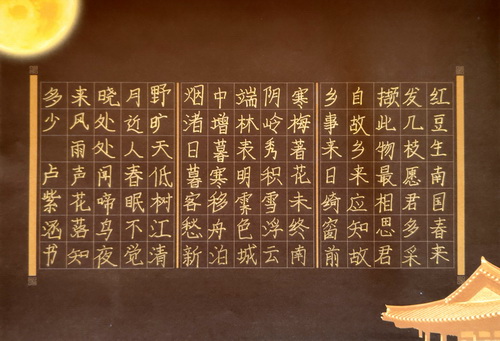 红豆生南国春来
发几枝愿君多采
撷此物最相思君
自故乡来应知故
乡事来日绮窗前
寒梅著花未终南
阴岭秀积雪浮云
端林表明霁色城
中增暮寒移舟泊
烟渚日暮客愁新
野旷天低树江清
月近人春眠不觉
晓处处闻啼鸟夜
来风雨声花落知
多少 卢紫涵书